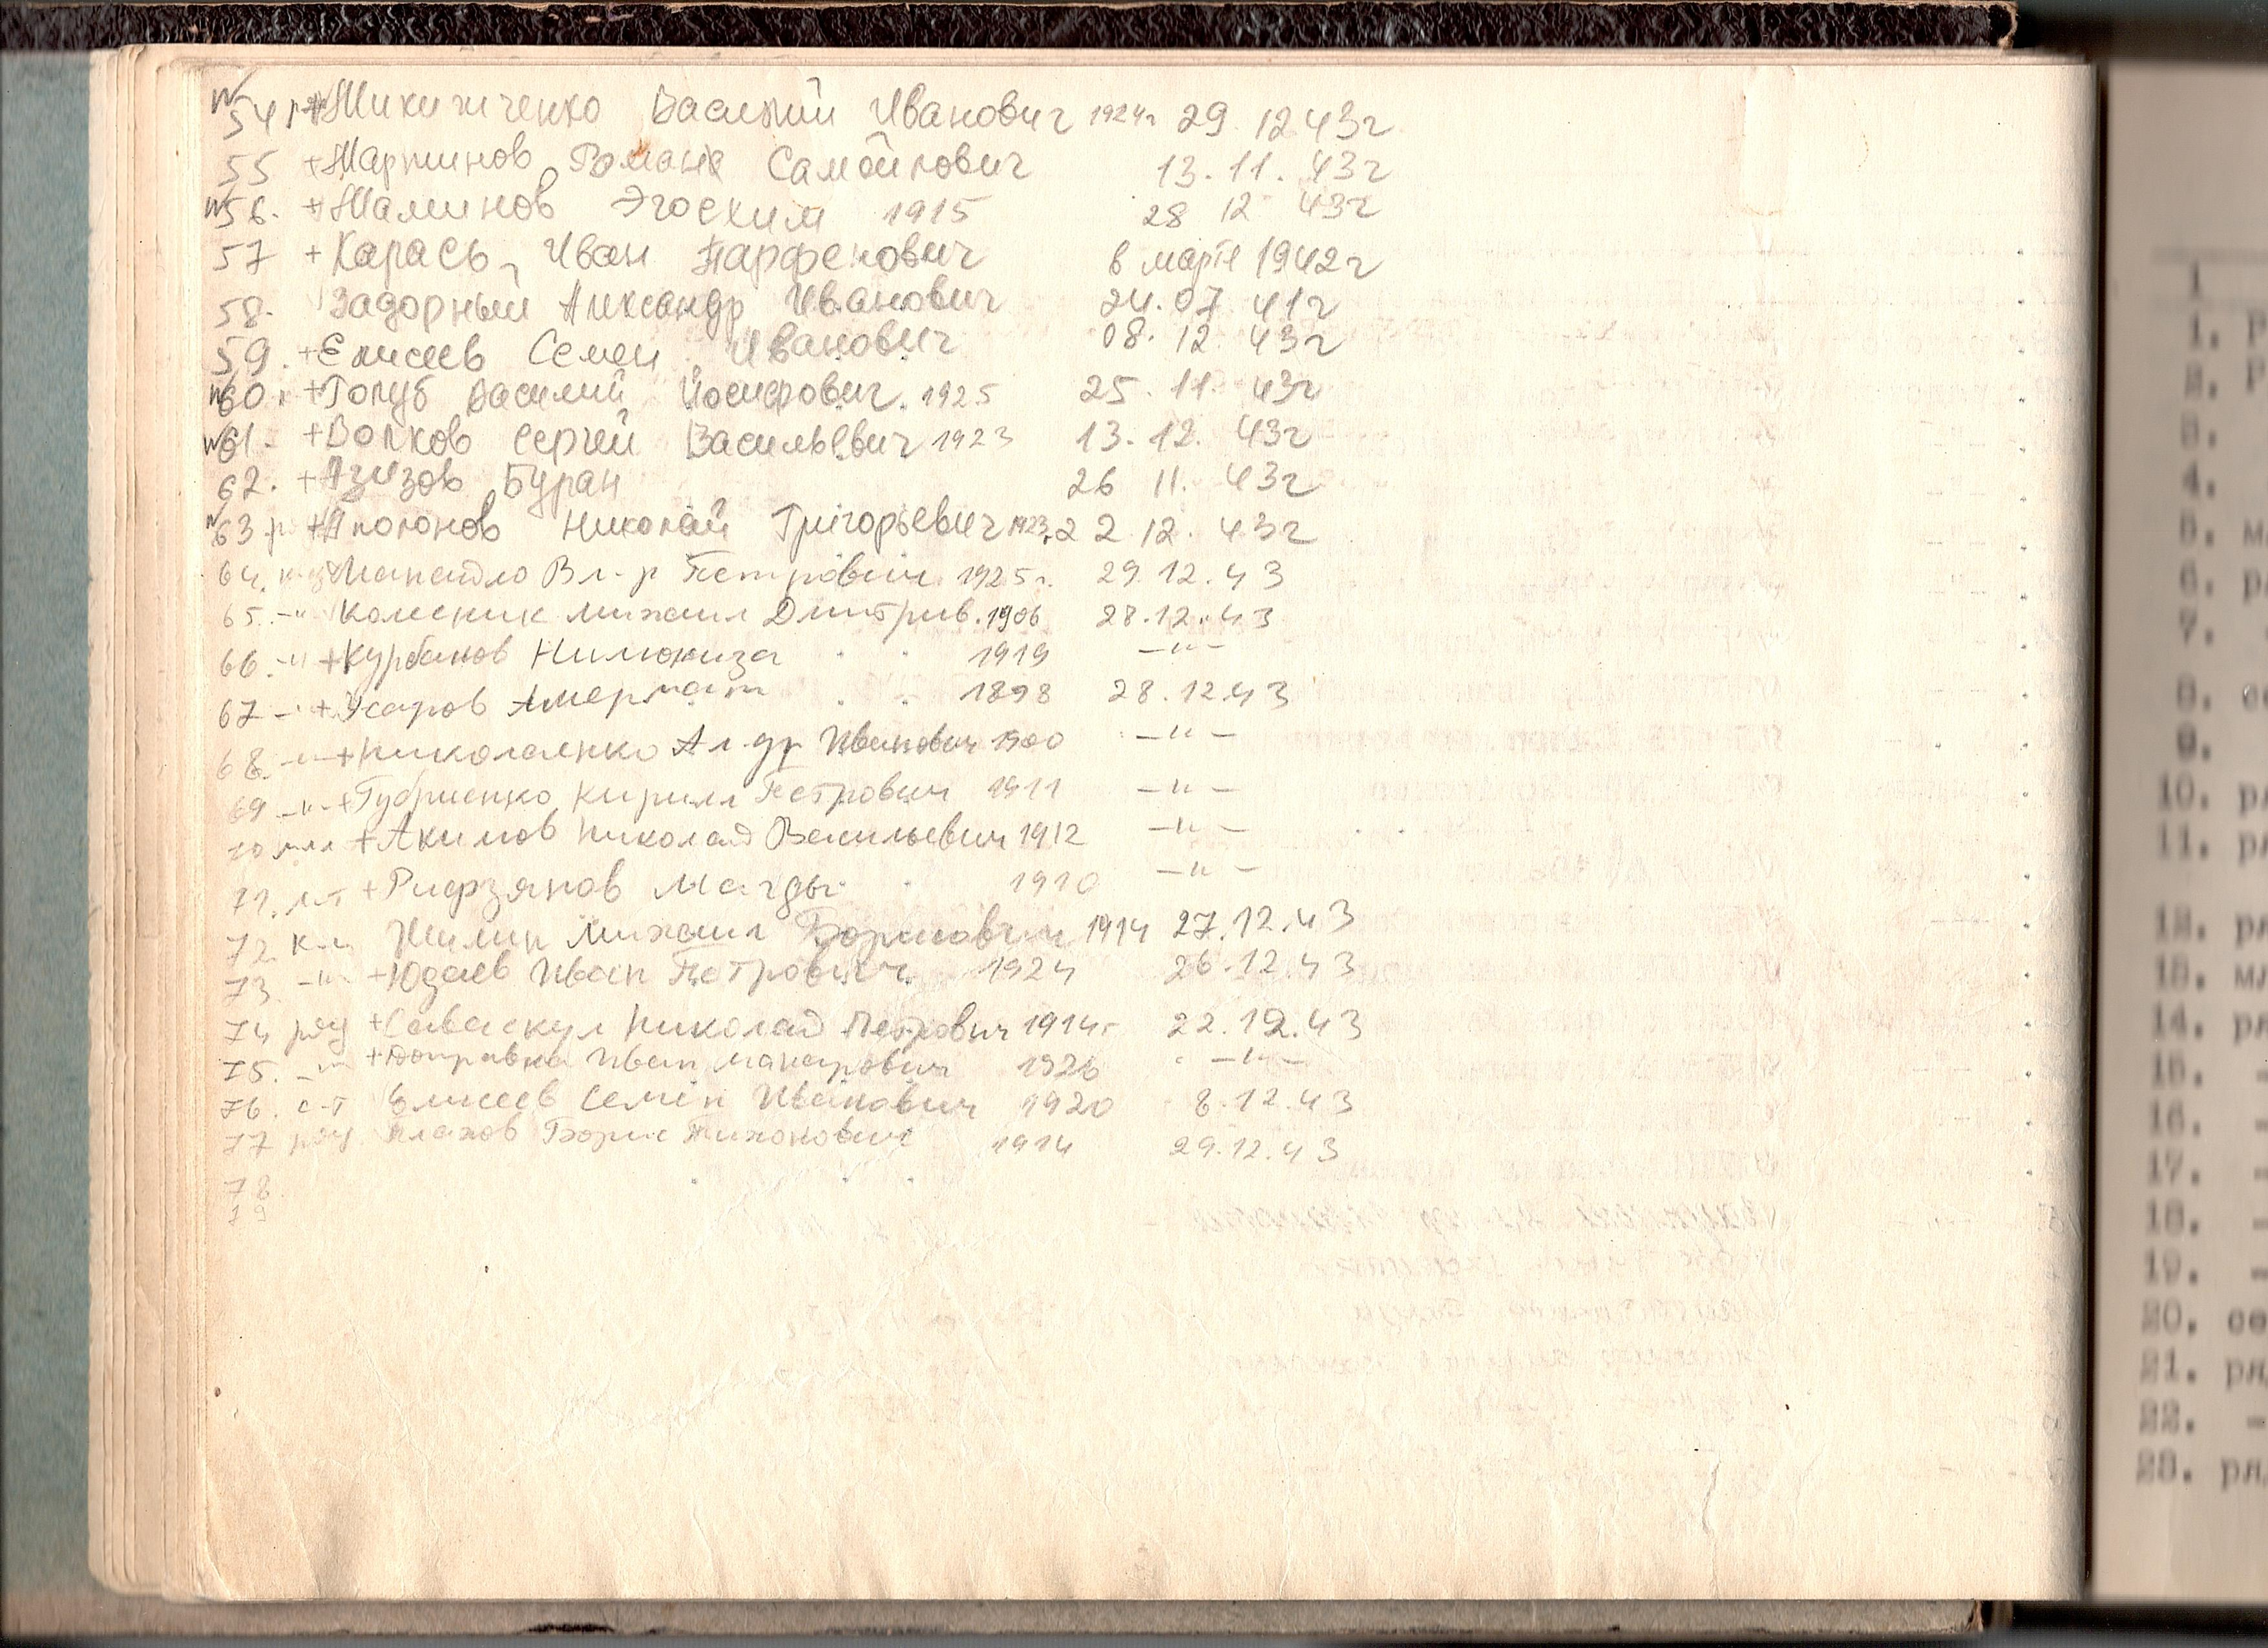 54 р + Микитченко Василий Иванович 1924г 29 12 43г
55 + Мартинов Романа Самойлович 13.11. 43г
56. + Маминов Эгоехим 1915 28 12 43г
57 + Карась Иван Парфенович в марте 1942г
58. Задорный Александр Иванович 24.07 41г
59. + Елисеев Семен Иванович 08. 12. 43г
60. + Голуб Василий Йосифович. 1925 25. 11. 43г
61. + Волков Сергей Васильевич 1923 13. 12. 43г
62. + Азизов Буран 26 11. 43г
63 р + Аполонов Николай Григорьевич 1923 22 12. 43г
64. Вл-р Петрович 1925г. 29.12.43
65. -"- Колесник Михаил Дмитрив. 1906 28.12.43
66. -"- + Курбанов 1919 -"-
67 -"- + 1898 28.12.43
68. -"- + Николаенко Ал-др Иванович 1900 -"-
69 -"- + Губриенко Кирилл Петрович 1911 -"-
70 мл + Акимов Николай Васильевич 1912 -"-
71. л-т + Рифзянов Магды 1910 -"-
72. Жилин Михаил Борисович 1914 27.12.43
73 -"- + Юдаев Иван Петрович 1924 26.12.43
74 ряд + Саваскул Николай Петрович 1914г 22.12.43
75. -"- + Иван Макарович 1926 -"-
76. с-т Елисеев Семен Иванович 1920 8.12.43
77 ряд Плахов Борис Тихонович 1914 29.12.43
78
79
1
1. Р
2. Р
3.
4.
5. м
6. р
7.
8. с
9.
10. р
11. р
12. ря
13. мл
14. ря
15. -
16. -
17. -
18. -
19. -
20. се
21. ря
22. -
23. ря